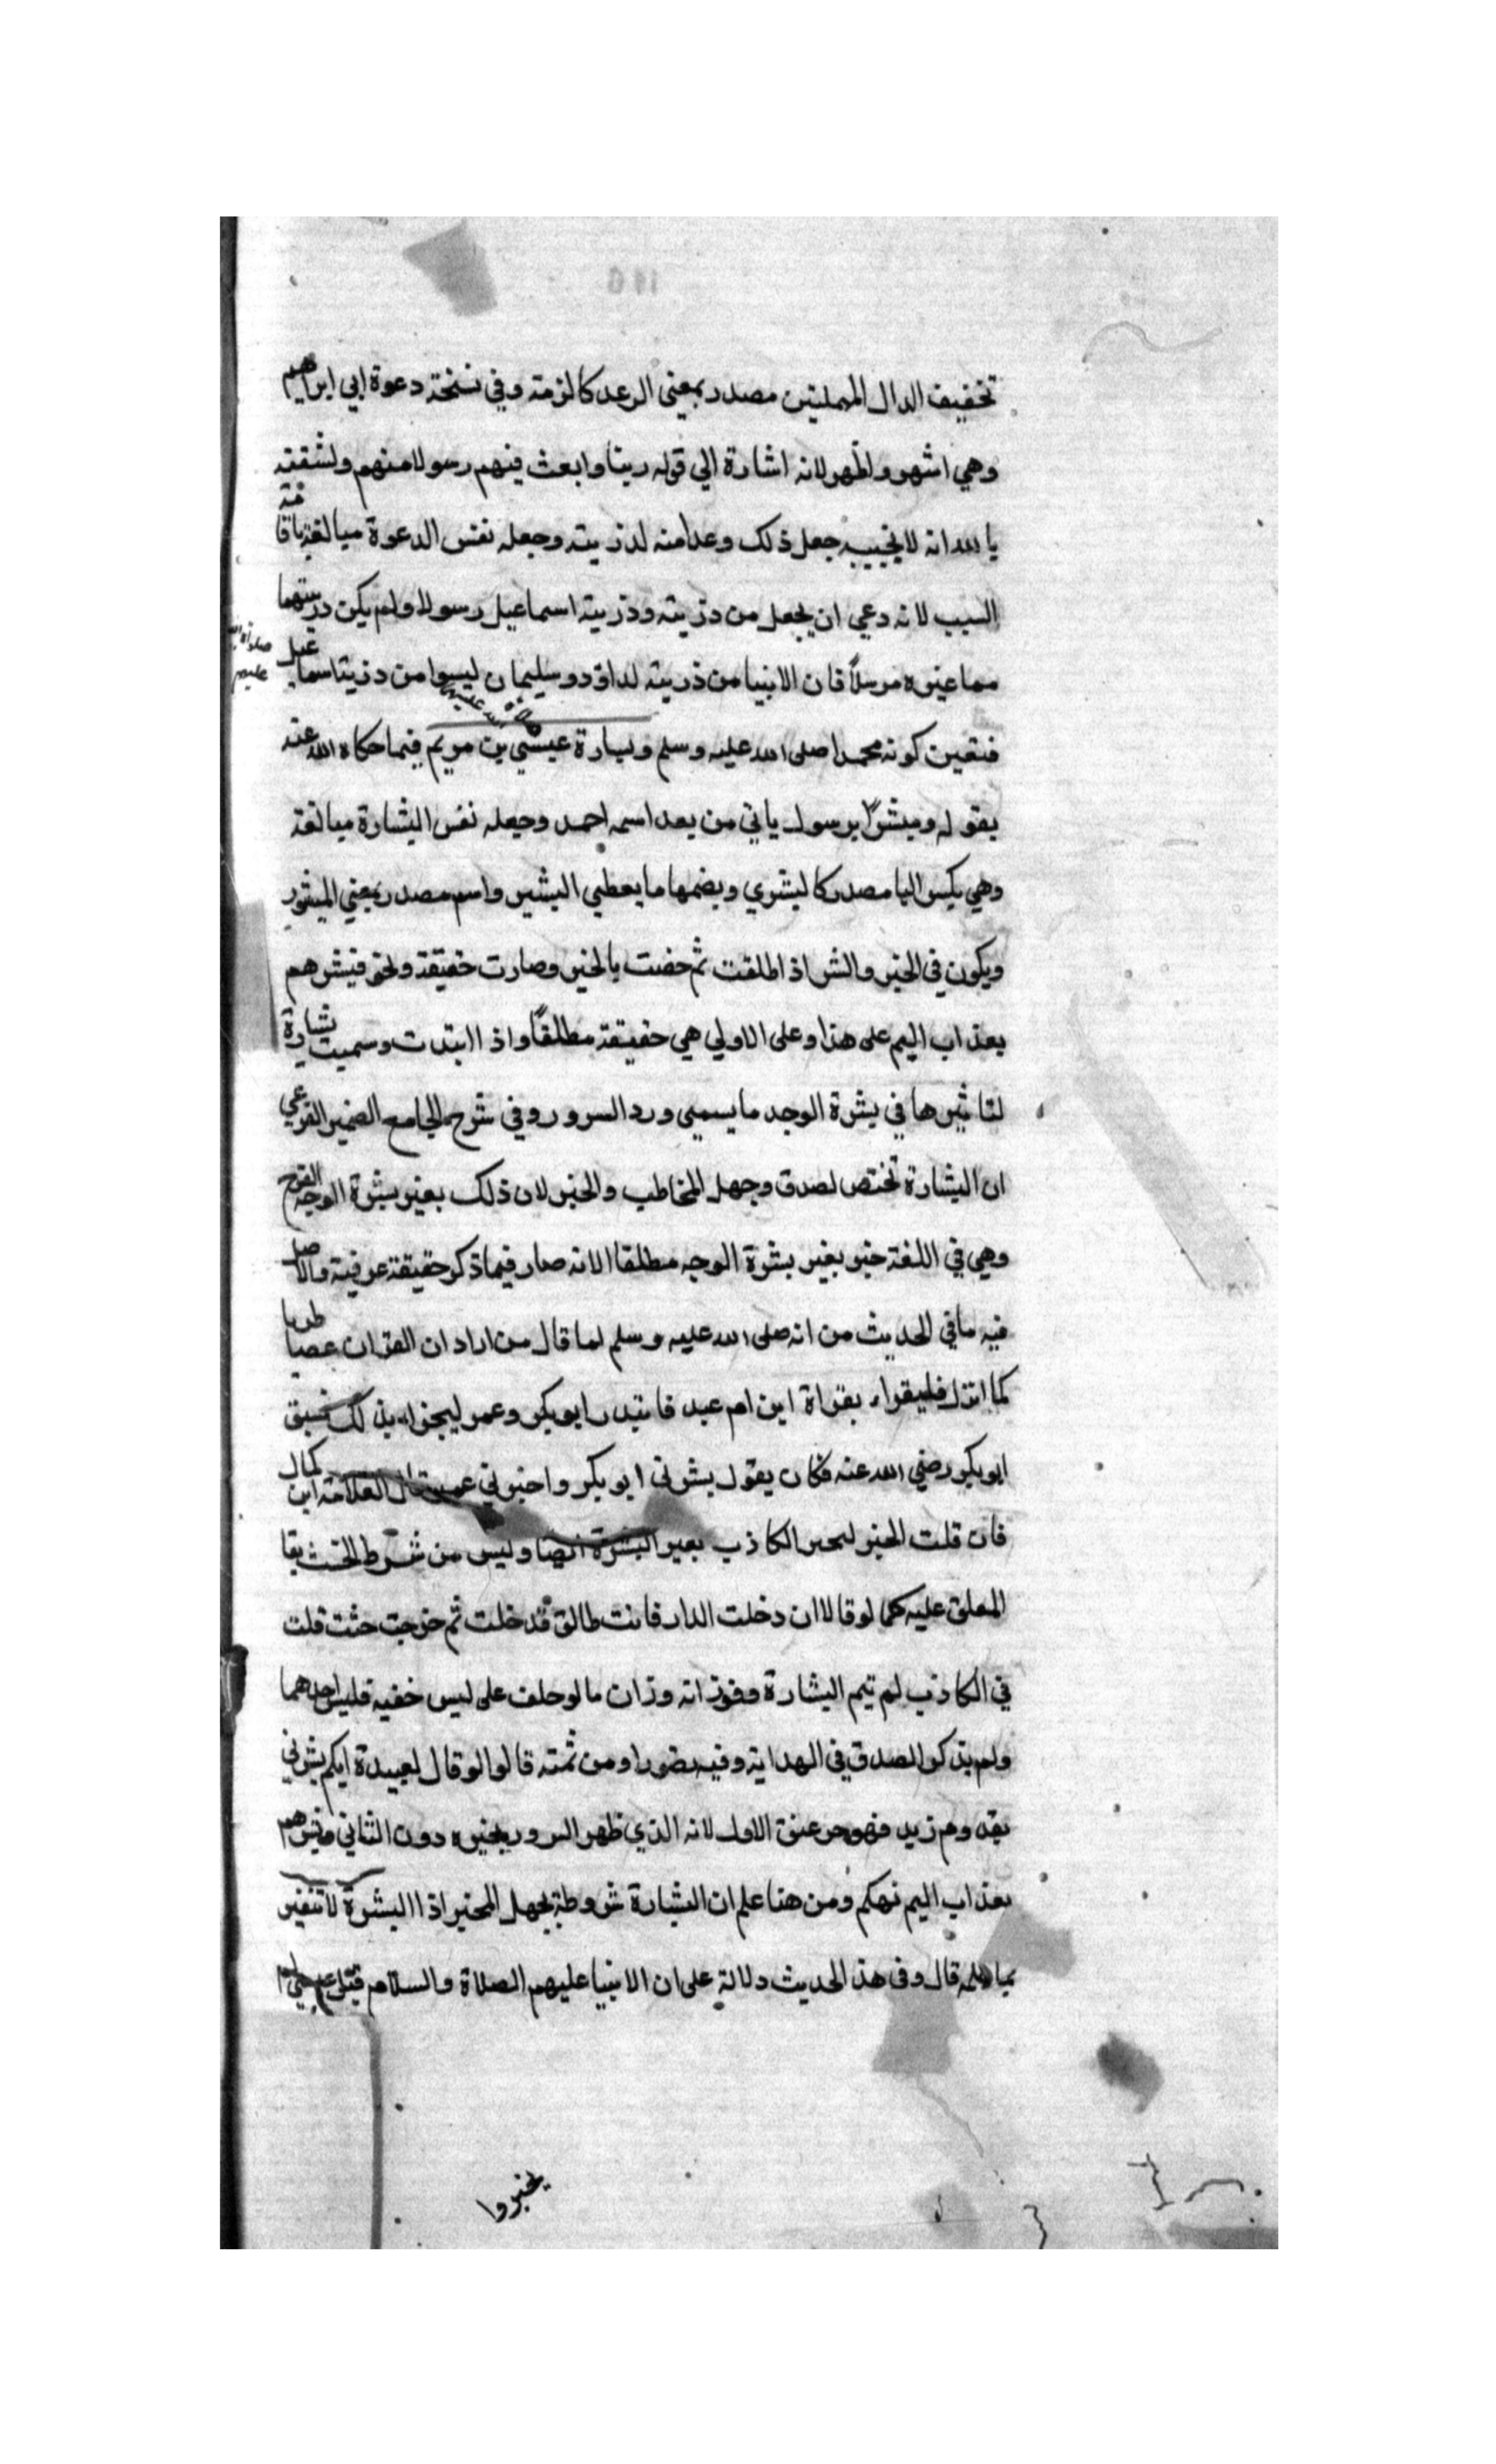 تخفيف الدال المهملتين مصدر بمعنى الوعد كالزمة وفي نسخة دعوة ابي ابراهيم
وهي اشهر واظهر لانه اشارة الي قوله ربنا وابعث فيهم رسولا منهم ولشفقته
بالله انه لا يخيبه جعل ذلك وعدا منه لذريته وجعله نفس الدعوة مبالغة باقامة
السبب لانه دعي ان يجعل من ذريته وذرية اسماعيل رسولا ولم يكن من ذريتهما
مما غيره مرسلاً فان الانبيا من ذريته لداود وسليمان ليسوا من ذرية اسماعيل
صلوات الله عليهم
فتعين كونه محمدا صلى الله عليه وسلم وبشارة عيسي بن مريم فيما حكاه الله عنه
بقوله ومبشرًا برسول ياتي من بعد اسمه احمد وجعله نفس البشارة مبالغة
وهي بكسر البا مصدر كالبشري وبضمها ما يعطي البشير واسم مصدر بمعني المبشور
ويكون في الخير والشر اذ اطلقت ثم خصت بالخير وصارت حقيقة ونحو فبشرهم
بعذاب اليم على هذا وعلى الاولي هي حقيقة مطلقًا واذا ابتدت وسميت بشارة
لتاثيرها في بشرة الوجه ما يسمى ورد السرور وفي شرح الجامع الصغير
ان البشارة تختص لصدق وجهل المخاطب والخبر لان ذلك بغير بشرة الوجه الفرح
وهي في اللغة خبر بغير بشرة الوجه مطلقا الا انه صار فيما ذكر حقيقة عرفية والاصل
فيه ما في الحديث من انه صلى الله عليه وسلم لما قال من اراد ان القران غضا طريا
كما انزل فليقراه بقراة ابن ام عبد فابتدر ابو بكر وعمر ليخبراه بذلك فسبق
ابو بكر رضي الله عنه فكان يقول بشرني ابو بكر واخبرني عمر قال العلامة ابن كمال
فان قلت الخبر الكاذب بغير البشرة ايضا وليس من شرط الحنث بقا
المعلق عليه كما لو قال ان دخلت الدار فانت طالق فدخلت ثم خرجت حنث قلت
في الكاذب لم تتم البشارة وفوزانه وزان ما لو حلف على لبس خفيه فلبس احدهما
ولم يذكر الصدق في الهداية وفيه ومن ثمته قالوا لو قال لعبيدة ايكم بشرني
بقدوم زيد فهو حر عتق الاول لانه الذي ظهر السرور بخبره دون الثاني فبشرهم
بعذاب اليم تهكم ومن هنا علم ان البشارة شروطة بجهل المخبر اذا البشرة لا تتغير
بما علمه قال وفي هذا الحديث دلالة على ان الانبيا عليهم الصلاة والسلام
يخبروا